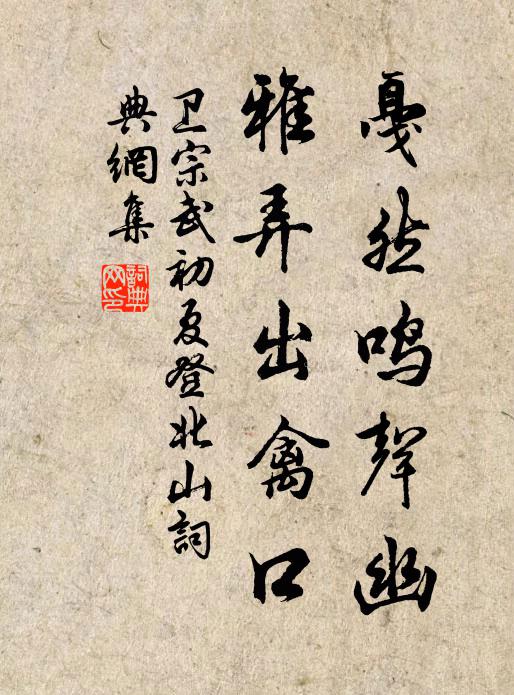 戛然鸣聲幽
雅弄出禽口
卫宗武初夏登北山詞
典網集
詞典網印